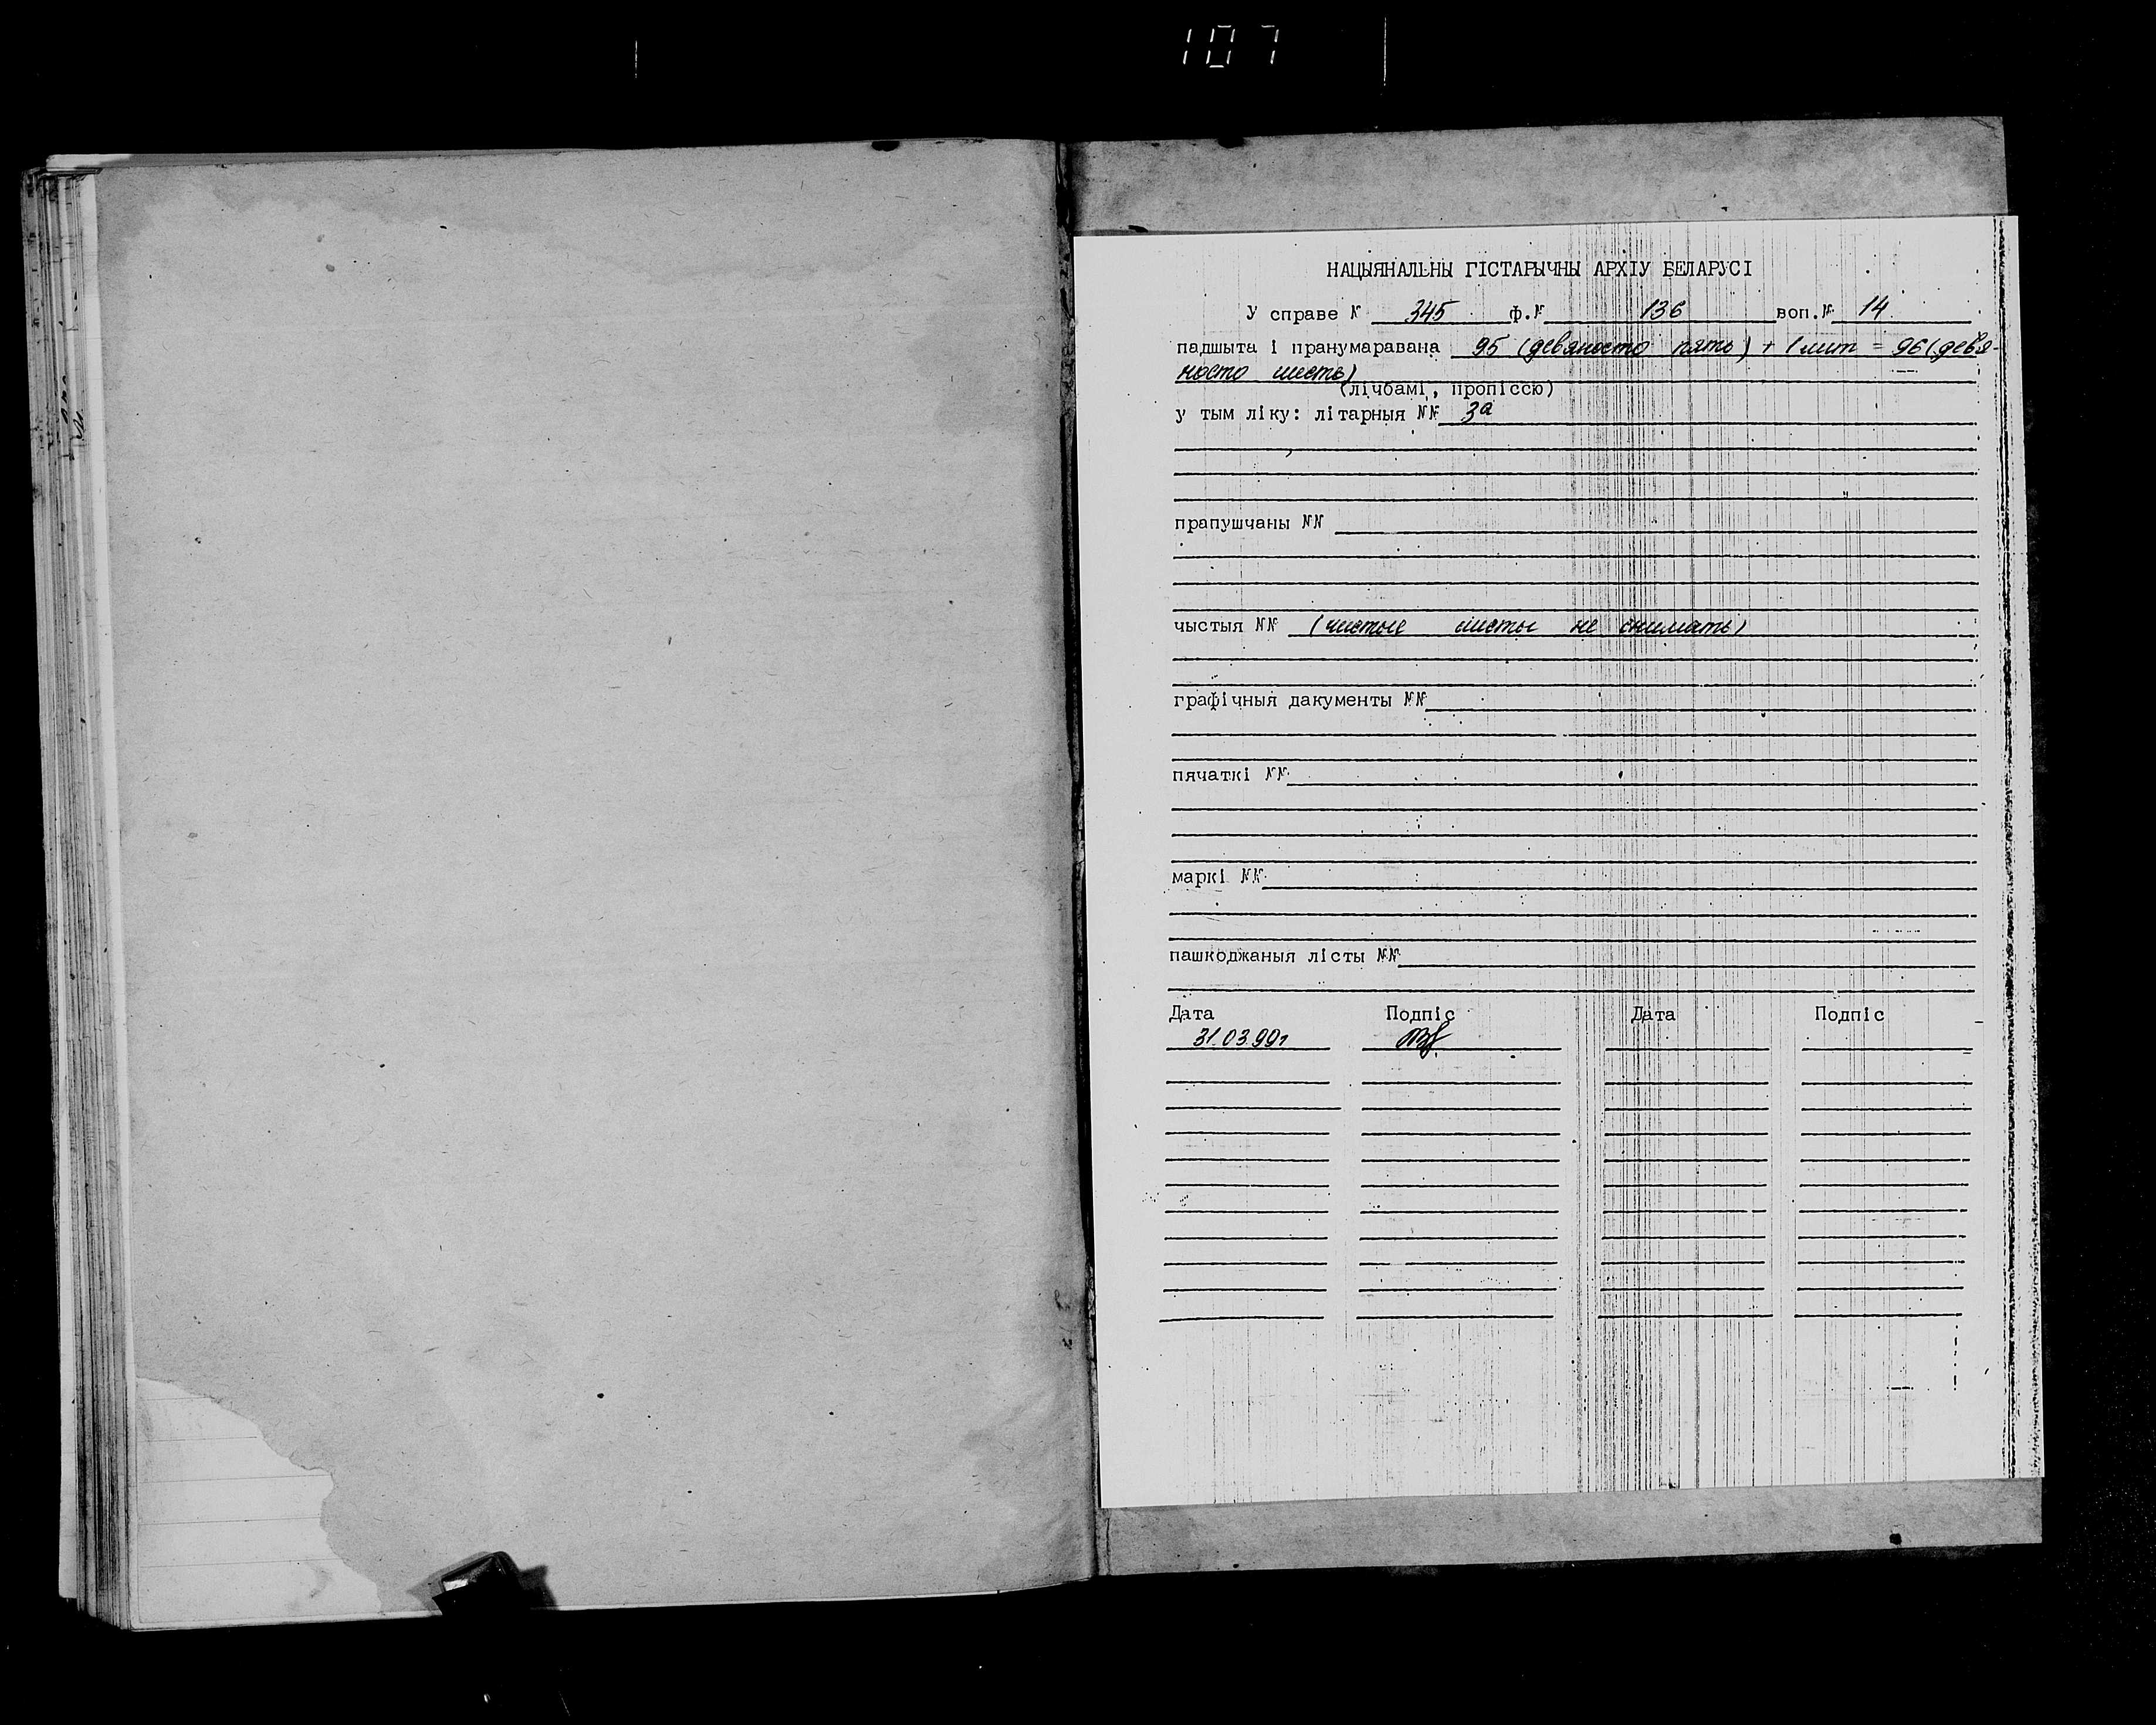 107
НАЦЫЯНАЛЬНЫ ГІСТАРЫЧНЫ АРХІУ БЕЛАРУСІ
У справе № 345 ф.№ 136 воп.№ 14
падшыта і пранумаравана 95 (девяносто пять) + 1 лит = 96 (девя-
носто шесть)
(лічбамі, пропіссю)
у тым ліку: літарныя №№ 3а
прапушчаны №№
чыстыя №№ (чистые листы не снимать)
графічныя дакументы №№
пячаткі №№
маркі №№
пашкоджаныя лісты №№
Дата Подпіс Дата Подпіс
31.03.99г